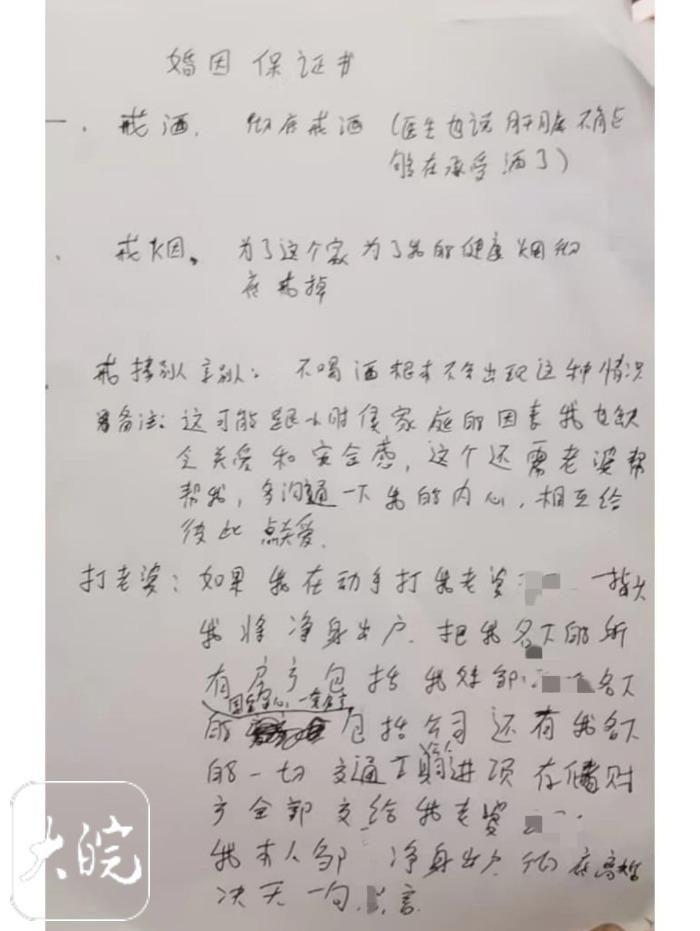 婚因保证书
一、戒酒. 彻底戒酒 (医生也说肝脏不能
够在承受酒了)
、戒烟。为了这个家为了我的健康烟彻
底戒掉
戒 : 不喝酒根本不会出现这种情况
备注: 这可能跟小时侯家庭的因素我也缺
乏关爱和安全感, 这个还需老婆帮
帮我, 多沟通一下我的内心, 相互给
彼此点关爱.
打老婆: 如果我在动手打我老婆 一指头
我将净身出户. 把我名下的所
有房产包括我 名下
的 包括公司还有我名下
的一切交通工具 进项存储财
产全部交给我老婆
我本人邹 净身出户 彻底离婚
决无一句 言
大皖